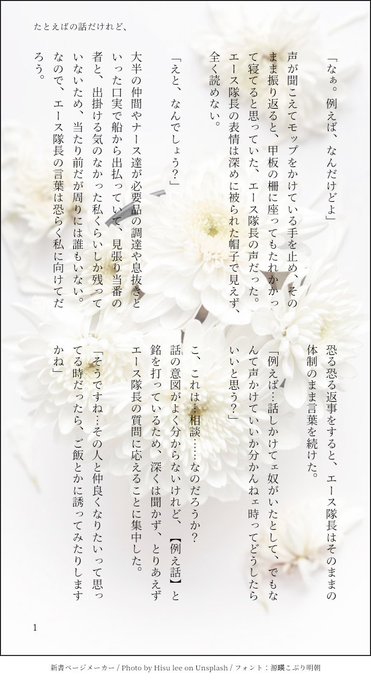 たとえばの話だけれど、
「なぁ。例えば、なんだけどよ」
声が聞こえてモップをかけている手を止め、その
まま振り返ると、甲板の柵に座ってもたれかかっ
て寝てると思っていた、エース隊長の声だった。
エース隊長の表情は深めに被られた帽子で見えず、
全く読めない。
「えと、なんでしょう?」
大半の仲間やナース達が必要品の調達や息抜きと
いった口実で船から出払っていて、見張り当番の
者と、出掛ける気のなかった私くらいしか残って
いないため、当たり前だが周りには誰もいない。
なので、エース隊長の言葉は恐らく私に向けてだ
ろう。
恐る恐る返事をすると、エース隊長はそのままの
体制のまま言葉を続けた。
「例えば…話しかけてェ奴がいたとして、でもな
んて声かけていいか分かんねェ時ってどうしたら
いいと思う?」
こ、これは…相談……なのだろうか?
話の意図がよく分からないけれど、【例え話】と
銘を打っているため、深くは聞かず、とりあえず
エース隊長の質問に応えることに集中した。
「そうですね…その人と仲良くなりたいって思っ
てる時だったら、ご飯とかに誘ってみたりします
かね」
1
新書ページメーカー / Photo by Hisu lee on Unsplash / フォント:源暎こぶり明朝